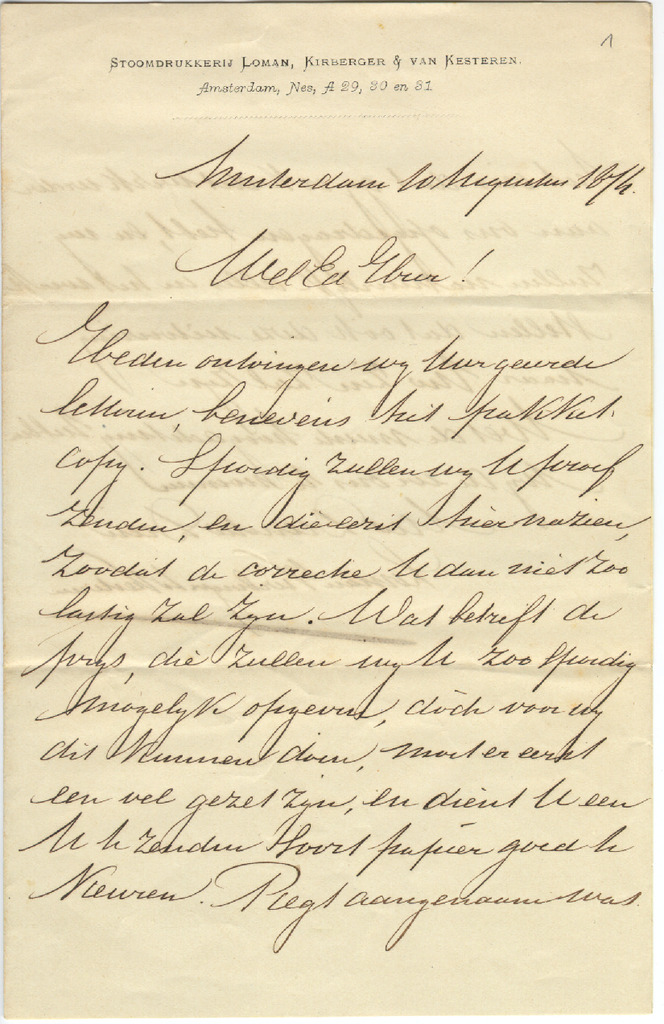 1
STOOMDRUKKERIJ LOMAN, KIRBERGER & VAN KESTEREN.
Amsterdam, Nes, A 29, 30 en 31.
Amsterdam 10 Augustus
WelEd Heer!
Heden ontvingen wy Uw geeerde
letteren, benevens het pakket
copy. Spoedig zullen wy U proef
zenden, en die eerst hier nazien,
zoodat de correctie U dan niet zoo
lastig zal zyn. Wat betreft de
prys, die zullen wy U zoo spoedig
mogelyk opgeven, doch voor wy
dit kunnen doen, moet er eerst
een vel gezet zyn, en dient U een
U te zenden soort papier goed te
Keuren. Regt aangenaam was